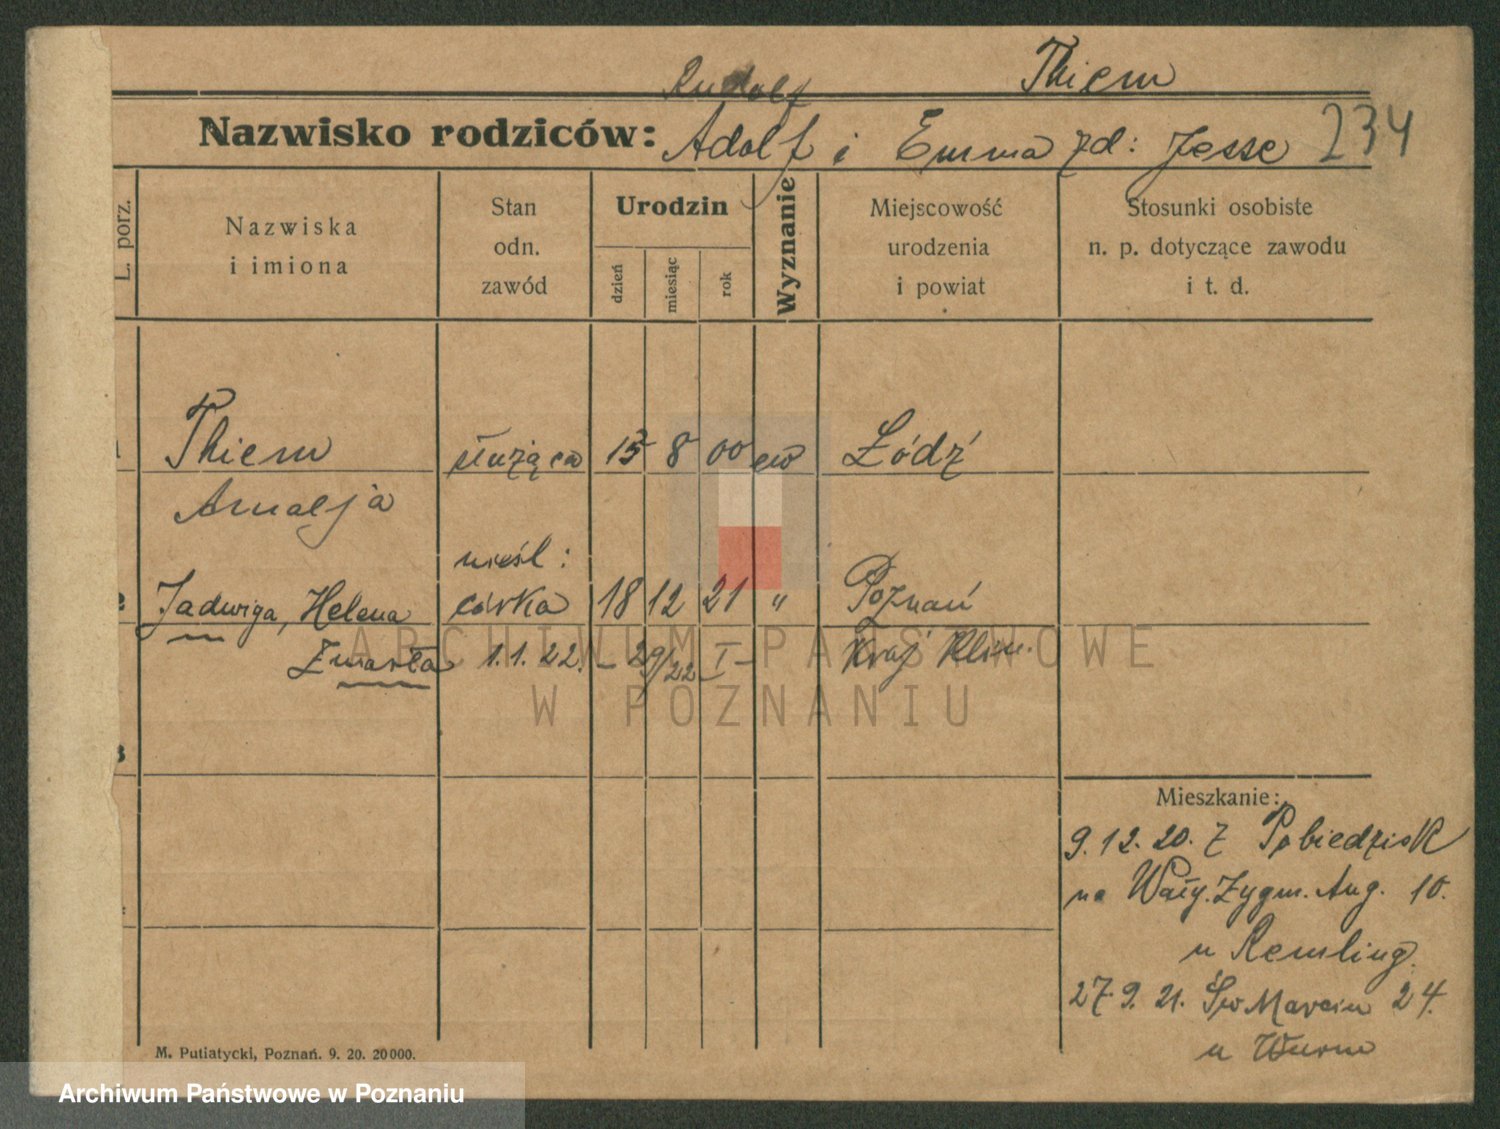 Rudolf Thiem
Nazwisko rodziców: Adolf i Emma zd: Jesse 234
L. porz.
Nazwiska
i imiona
Stan
odn.
zawód
Urodzin
dzień
miesiąc
rok
Wyznanie
Miejscowość
urodzenia
i powiat
Stosunki osobiste
n. p. dotyczące zawodu
i t. d.
Thiem służąca 15 8 00 ew Łódź
Amalja
nieśl:
Jadwiga, Helena córka 18 12 21 " Poznań
Zmarła 1.1.22. – 29/22 I – Kraj Klin.
3
Mieszkanie:
9.12.20. z Pobiedzisk
na Wały. Zygm. Aug. 10.
u Remling.
27.9.21. Św Marcin 24.
u Wurm
M. Putiatycki, Poznań. 9. 20. 20000.
ARCHIWUM PAŃSTWOWE
W POZNANIU
Archiwum Państwowe w Poznaniu